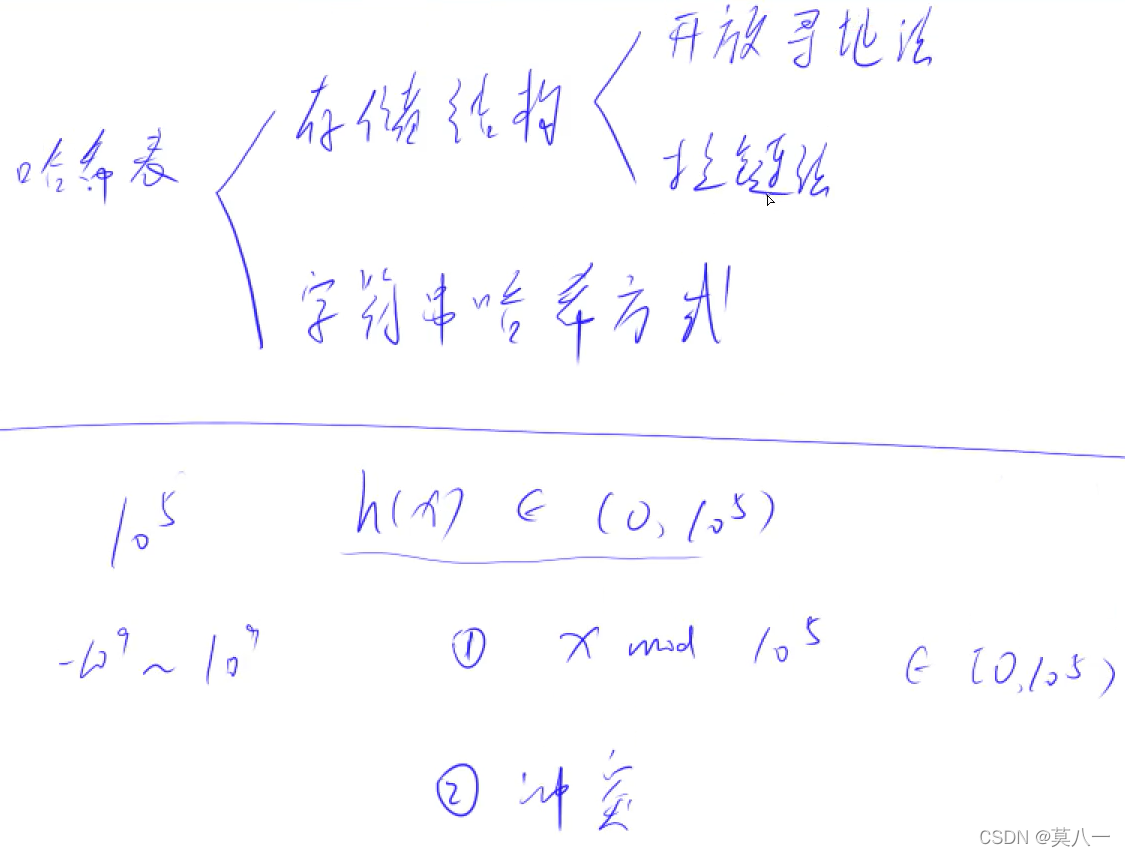 开放寻址法
存储结构
哈希表
拉链法
字符串哈希方式
10^5 h(x) ∈ (0, 10^5)
-10^9 ~ 10^9 ① x mod 10^5 ∈ [0, 10^5)
② 冲突
CSDN @莫八一